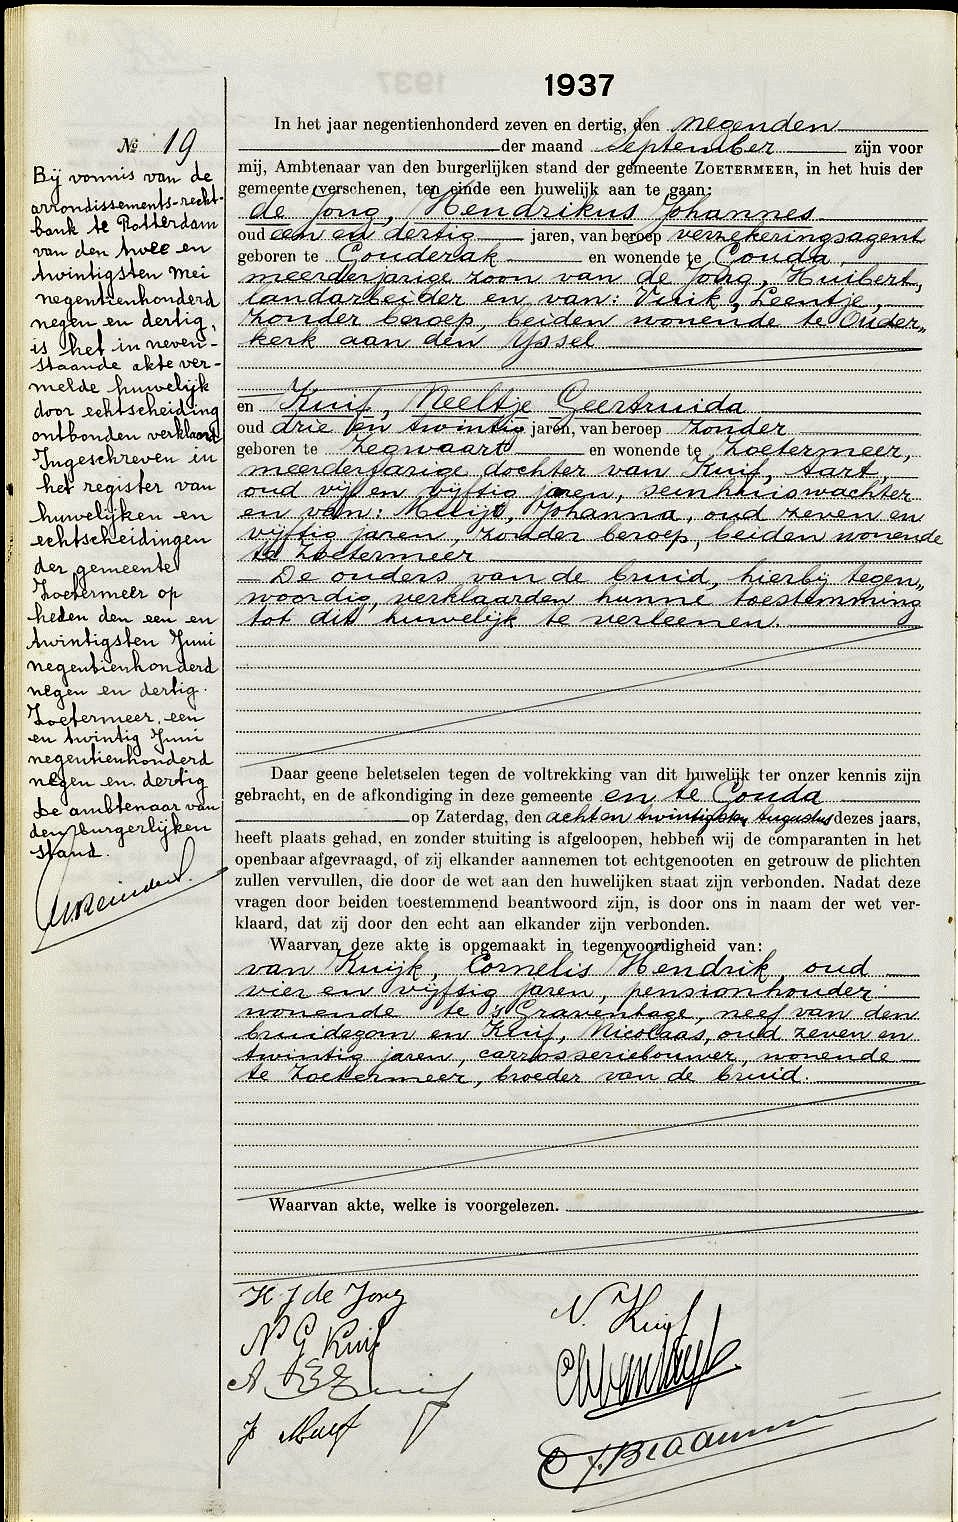 1937
№ 19
Bij vonnis van de
arrondissements-recht-
bank te Rotterdam
van den twee en
twintigsten mei
negentienhonderd
negen en dertig,
is het in neven-
staande akte ver-
melde huwelijk
door echtscheiding
ontbonden verklaard
Ingeschreven in
het register van
huwelijken en
echtscheidingen
der gemeente
Zoetermeer op
heden den een en
twintigsten Juni
negentienhonderd
negen en dertig.
Zoetermeer, een
en twintig Juni
negentienhonderd
negen en dertig
De ambtenaar van
den burgerlijken
stand.
In het jaar negentienhonderd zeven en dertig, den negenden
der maand September zijn voor
mij, Ambtenaar van den burgerlijken stand der gemeente ZOETERMEER, in het huis der
gemeente verschenen, ten einde een huwelijk aan te gaan:
de Jong, Hendrikus Johannes
oud een en dertig jaren, van beroep verzekeringsagent
geboren te Gouderak en wonende te Gouda,
meerderjarige zoon van de Jong, Huibert,
landarbeider en van: Vink, Leentje,
zonder beroep, beiden wonende te Ouder„
kerk aan den Yssel
en Kuif, Neeltje Geertruida
oud drie en twintig jaren, van beroep zonder
geboren te Zegwaart en wonende te Zoetermeer,
meerderjarige dochter van Kuif, Aart,
oud vijf en vijftig jaren, seinhuiswachter
en van: Johanna, oud zeven en
vijftig jaren, zonder beroep, beiden wonende
te Zoetermeer
De ouders van de bruid, hierbij tegen„
woordig, verklaarden hunne toestemming
tot dit huwelijk te verleenen.
Daar geene beletselen tegen de voltrekking van dit huwelijk ter onzer kennis zijn
gebracht, en de afkondiging in deze gemeente en te Gouda
op Zaterdag, den acht en twintigsten Augustus dezes jaars,
heeft plaats gehad, en zonder stuiting is afgeloopen, hebben wij de comparanten in het
openbaar afgevraagd, of zij elkander aannemen tot echtgenooten en getrouw de plichten
zullen vervullen, die door de wet aan den huwelijken staat zijn verbonden. Nadat deze
vragen door beiden toestemmend beantwoord zijn, is door ons in naam der wet ver-
klaard, dat zij door den echt aan elkander zijn verbonden.
Waarvan deze akte is opgemaakt in tegenwoordigheid van:
van Kuijk, Cornelis Hendrik, oud
vier en vijftig jaren, pensionhouder
wonende te 's Gravenhage, neef van den
bruidegom en Kuif, Nicolaas, oud zeven en
twintig jaren, carrosseriebouwer, wonende
te Zoetermeer, broeder van de bruid.
Waarvan akte, welke is voorgelezen.
H J de Jong
N G Kuif
N. Kuif